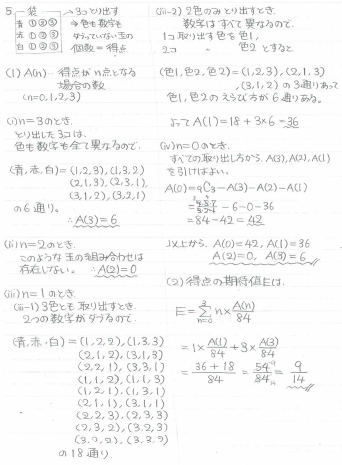 5. 袋
青 ① ② ③
赤 ① ② ③
白 ① ② ③
→3コとり出す
⇒色も数字も
ダブっていない玉の
個数=得点
(1) A(n)…得点がn点となる
場合の数
(n=0,1,2,3)
(i) n=3のとき
とり出した3コは、
色も数字も全て異なるので、
(青,赤,白)=(1,2,3),(1,3,2)
(2,1,3),(2,3,1),
(3,1,2),(3,2,1)
の6通り。
∴A(3)=6
(ii) n=2のとき
このような玉の組み合わせは
存在しない。 ∴A(2)=0
(iii) n=1のとき
(iii-1) 3色とも取り出すとき
2つの数字がダブるので、
(青,赤,白)=(1,2,2),(1,3,3)
(2,1,2),(3,1,3)
(2,2,1),(3,3,1)
(1,1,2),(1,1,3)
(1,2,1),(1,3,1)
(2,1,1),(3,1,1)
(2,2,3),(2,3,3)
(2,3,2),(3,2,3)
(3,2,2),(3,3,2)
の18通り
(iii-2) 2色のみとり出すとき
数字はすべて異なるので、
1コ取り出す色を色1,
2コ 〃 色2とすると
(色1,色2,色2)=(1,2,3),(2,1,3)
,(3,1,2)の3通りあって
色1,色2のえらび方が6通りある。
よってA(1)=18+3×6=36
(iv) n=0のとき
すべての取り出し方から、A(3),A(2),A(1)
を引けばよい。
A(0)=9C3-A(3)-A(2)-A(1)
-6-0-36
=84-42=42
以上から、A(0)=42, A(1)=36
A(2)=0, A(3)=6
(2) 得点の期待値Eは、
E=Σ n=0 3 n×A(n)/84
=1×A(1)/84+3×A(3)/84
=36+18/84=54/84=9/14